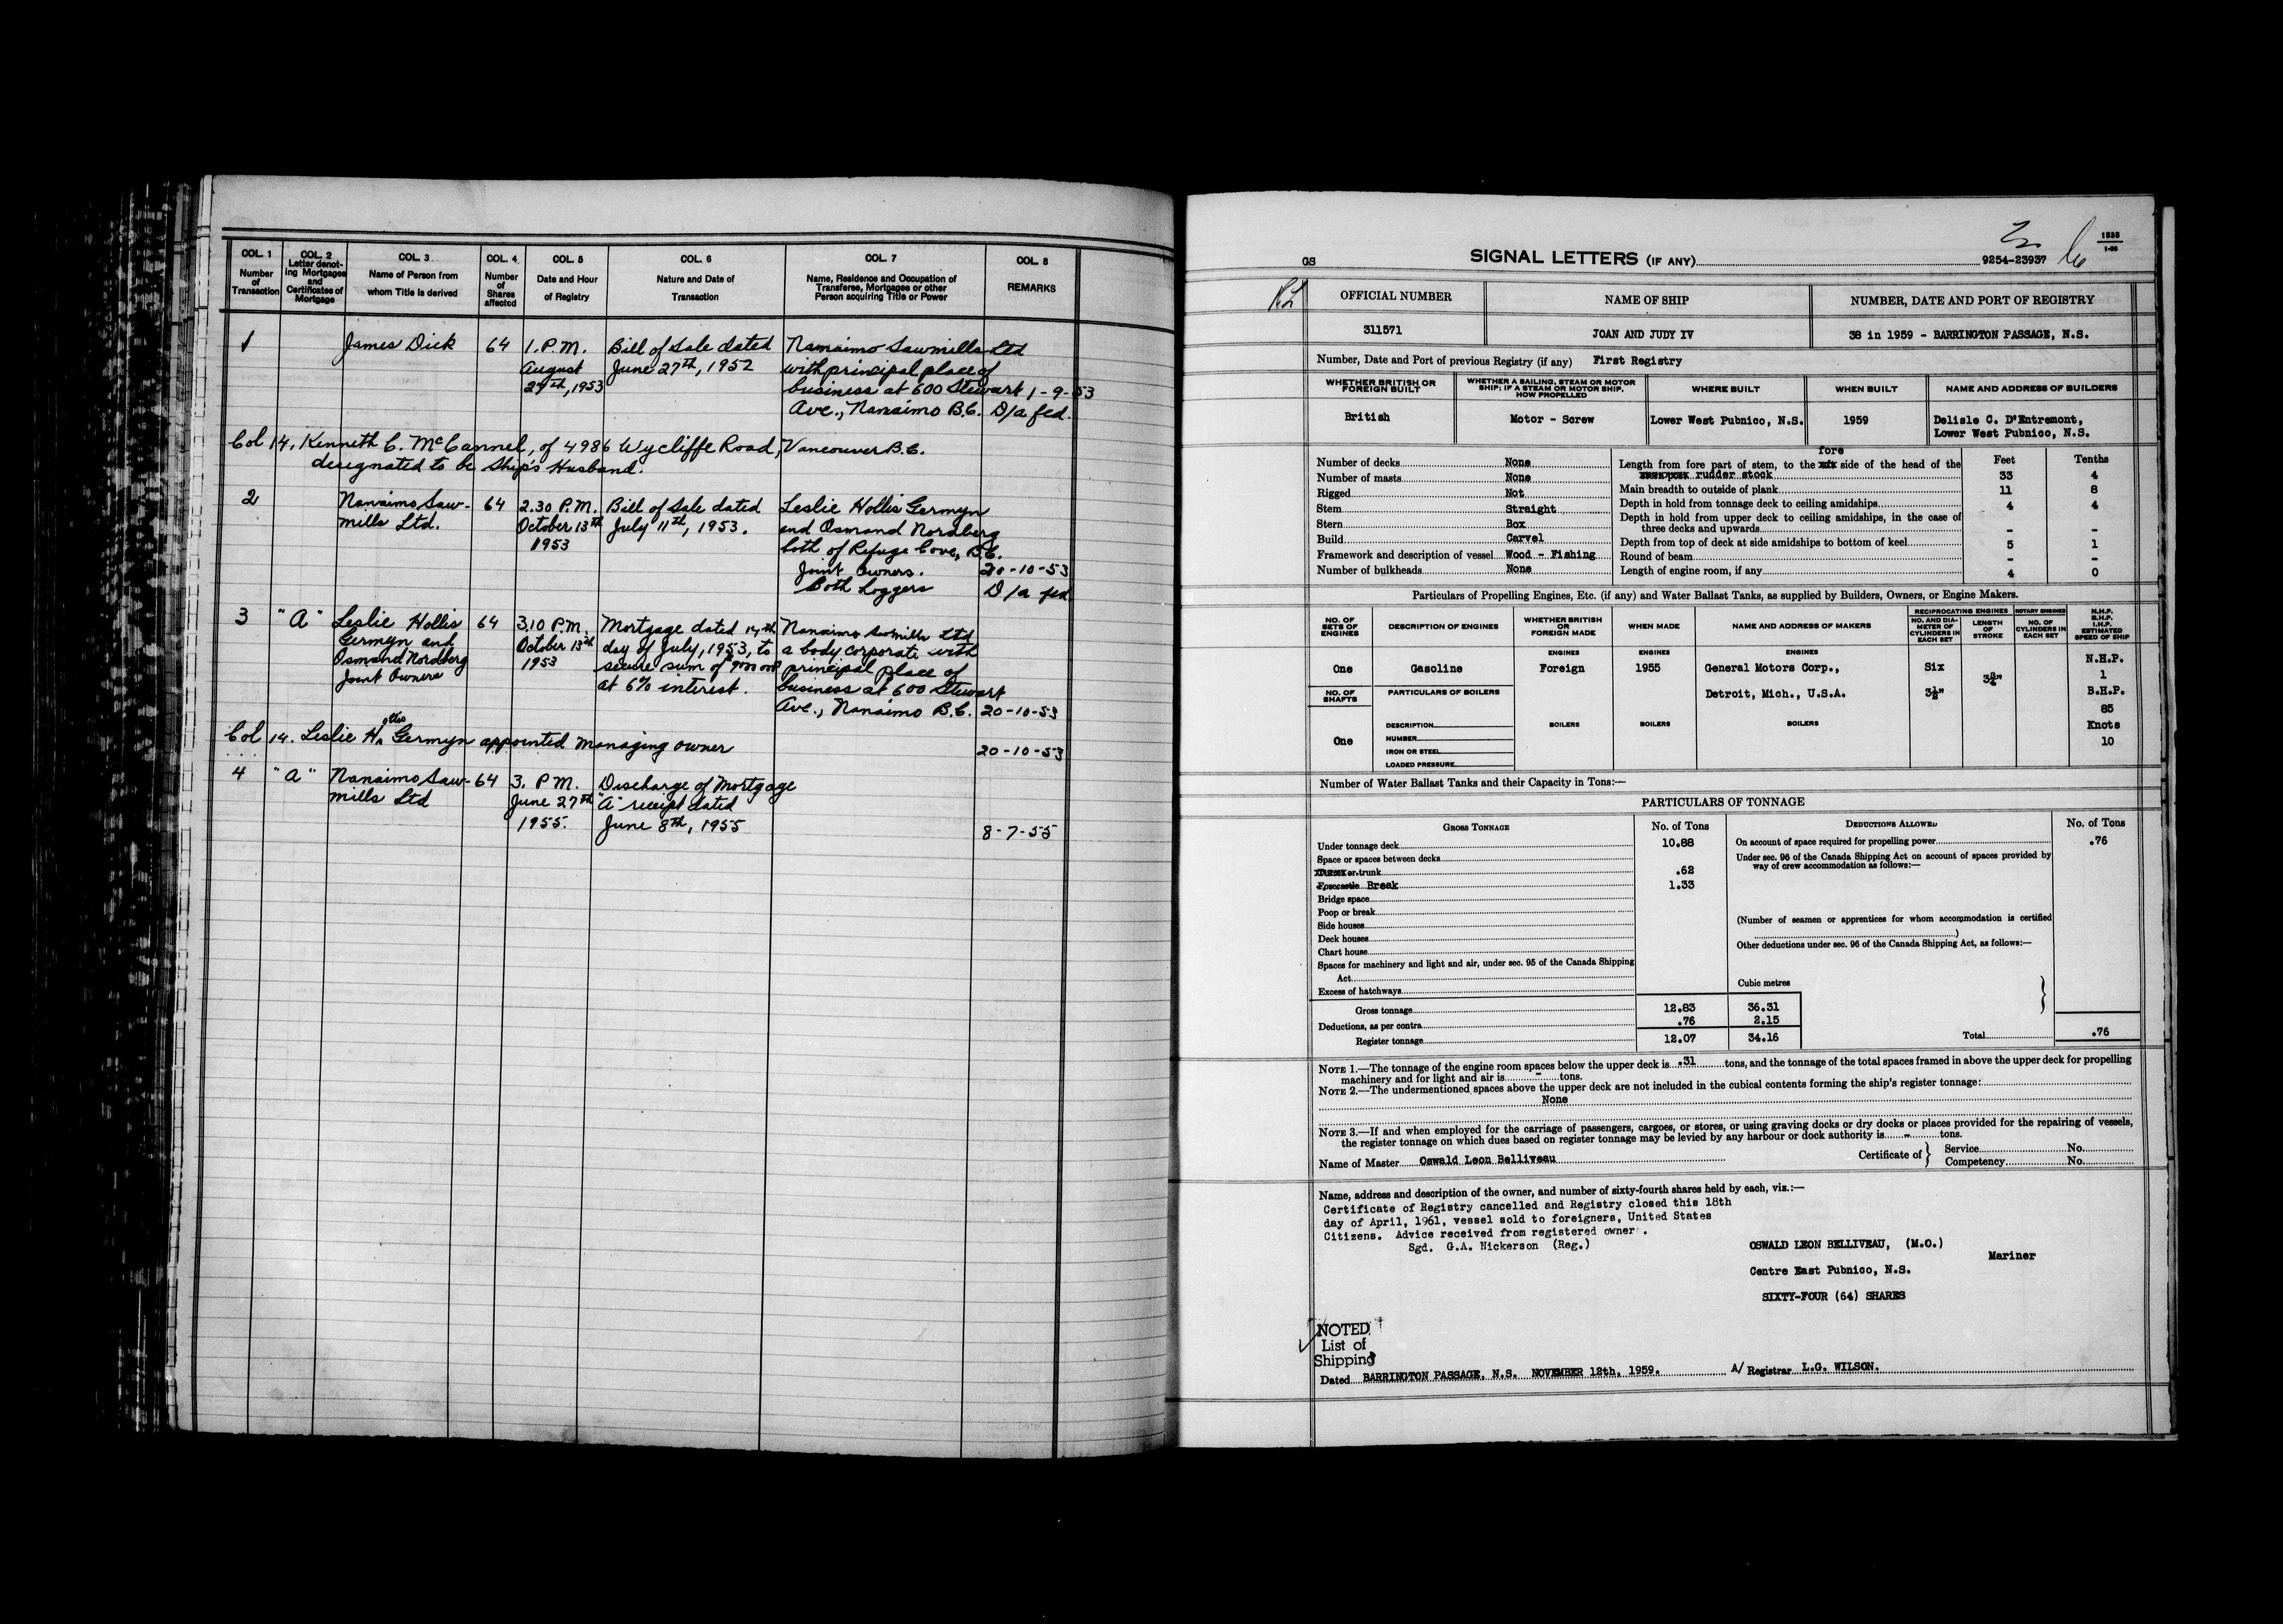 COL. 1
Number
of
Transaction
COL. 2
Letter denot-
ing Mortgages
and
Certificates of
Mortgage
COL. 3
Name of Person from
whom Title is derived
COL. 4
Number
of
Shares
affected
COL. 5
Date and Hour
of Registry
COL. 6
Nature and Date of
Transaction
COL. 7
Name, Residence and Occupation of
Transferee, Mortgagee or other
Person acquiring Title or Power
COL. 8
REMARKS
1
James Dick
64
1. P.M.
August
29th, 1953
Bill of Sale dated
June 27th, 1952
Nanaimo Sawmills Ltd
with principal place of
business at 600 Stewart
Ave., Nanaimo B.C.
1-9-53
D/a fed.
Col 14. Kenneth C. McCannel, of 4986 Wycliffe Road, Vancouver B.C.
designated to be Ship's Husband.
2
Nanaimo Saw-
mills Ltd.
64
2.30 P.M.
October 13th
1953
Bill of Sale dated
July 11th, 1953.
Leslie Hollis Germyn
and Osmand Nordberg
both of Refuge Cove, B.C.
Joint Owners.
both Loggers
20-10-53
D/a fed.
3
"A"
Leslie Hollis
Germyn and
Osmand Nordberg
Joint Owners
64
3.10 P.M.
October 13th
1953
Mortgage dated 14th
day of July, 1953, to
secure sum of
at 6% interest.
Nanaimo Sawmills Ltd
a body corporate with
principal place of
business at 600 Stewart
Ave., Nanaimo B.C.
20-10-53
Col 14. Leslie Hollis Germyn appointed Managing owner
20-10-53
4
"A"
Nanaimo Saw-
mills Ltd
64
3. P.M.
June 27th
1955.
Discharge of Mortgage
"A" receipt dated
June 8th, 1955
8-7-55
1535
1-56
GS
SIGNAL LETTERS (IF ANY)
9254-23937
OFFICIAL NUMBER
NAME OF SHIP
NUMBER, DATE AND PORT OF REGISTRY
311571
JOAN AND JUDY IV
38 in 1959 - BARRINGTON PASSAGE, N.S.
Number, Date and Port of previous Registry (if any) First Registry
WHETHER BRITISH OR
FOREIGN BUILT
WHETHER A SAILING, STEAM OR MOTOR
SHIP; IF A STEAM OR MOTOR SHIP,
HOW PROPELLED
WHERE BUILT
WHEN BUILT
NAME AND ADDRESS OF BUILDERS
British
Motor - Screw
Lower West Pubnico, N.S.
1959
Delisle C. D'Entremont,
Lower West Pubnico, N.S.
Number of decks None
Number of masts None
Rigged Not
Stem Straight
Stern Box
Build Carvel
Framework and description of vessel Wood - Fishing
Number of bulkheads None
Feet
Tenths
fore
Length from fore part of stem, to the side of the head of the
rudder stock 33 4
Main breadth to outside of plank 11 8
Depth in hold from tonnage deck to ceiling amidships 4 4
Depth in hold from upper deck to ceiling amidships, in the case of
three decks and upwards - -
Depth from top of deck at side amidships to bottom of keel 5 1
Round of beam - -
Length of engine room, if any 4 0
Particulars of Propelling Engines, Etc. (if any) and Water Ballast Tanks, as supplied by Builders, Owners, or Engine Makers.
NO. OF
SETS OF
ENGINES
DESCRIPTION OF ENGINES
WHETHER BRITISH
OR
FOREIGN MADE
WHEN MADE
NAME AND ADDRESS OF MAKERS
RECIPROCATING ENGINES
NO. AND DIA-
METER OF
CYLINDERS IN
EACH SET
LENGTH
OF
STROKE
ROTARY ENGINES
NO. OF
CYLINDERS IN
EACH SET
N.H.P.
B.H.P.
I.H.P.
ESTIMATED
SPEED OF SHIP
ENGINES
ENGINES
ENGINES
One
Gasoline
Foreign
1955
General Motors Corp.,
Detroit, Mich., U.S.A.
Six
3½"
3¾"
N.H.P.
1
B.H.P.
85
Knots
10
NO. OF
SHAFTS
PARTICULARS OF BOILERS
One
DESCRIPTION
NUMBER
IRON OR STEEL
LOADED PRESSURE
BOILERS
BOILERS
BOILERS
Number of Water Ballast Tanks and their Capacity in Tons:—
PARTICULARS OF TONNAGE
GROSS TONNAGE
No. of Tons
DEDUCTIONS ALLOWED
No. of Tons
Under tonnage deck 10.88
Space or spaces between decks
or trunk .62
Forecastle Break 1.33
Bridge space
Poop or break
Side houses
Deck houses
Chart house
Spaces for machinery and light and air, under sec. 95 of the Canada Shipping
Act
Excess of hatchways
On account of space required for propelling power .76
Under sec. 96 of the Canada Shipping Act on account of spaces provided by
way of crew accommodation as follows:—
(Number of seamen or apprentices for whom accommodation is certified
)
Other deductions under sec. 96 of the Canada Shipping Act, as follows:—
Cubic metres
Gross tonnage 12.83 36.31
Deductions, as per contra .76 2.15
Register tonnage 12.07 34.16
Total .76
NOTE 1.—The tonnage of the engine room spaces below the upper deck is .31 tons, and the tonnage of the total spaces framed in above the upper deck for propelling
machinery and for light and air is - tons.
NOTE 2.—The undermentioned spaces above the upper deck are not included in the cubical contents forming the ship's register tonnage:
None
NOTE 3.—If and when employed for the carriage of passengers, cargoes, or stores, or using graving docks or dry docks or places provided for the repairing of vessels,
the register tonnage on which dues based on register tonnage may be levied by any harbour or dock authority is - tons.
Name of Master Oswald Leon Belliveau
Certificate of } Service No.
Competency No.
Name, address and description of the owner, and number of sixty-fourth shares held by each, viz.:—
Certificate of Registry cancelled and Registry closed this 18th
day of April, 1961, vessel sold to foreigners, United States
Citizens. Advice received from registered owner.
Sgd. G.A. Nickerson (Reg.)
OSWALD LEON BELLIVEAU, (M.O.)
Mariner
Centre East Pubnico, N.S.
SIXTY-FOUR (64) SHARES
NOTED
List of
Shipping
Dated BARRINGTON PASSAGE, N.S. NOVEMBER 12th, 1959. A/ Registrar L.G. WILSON.